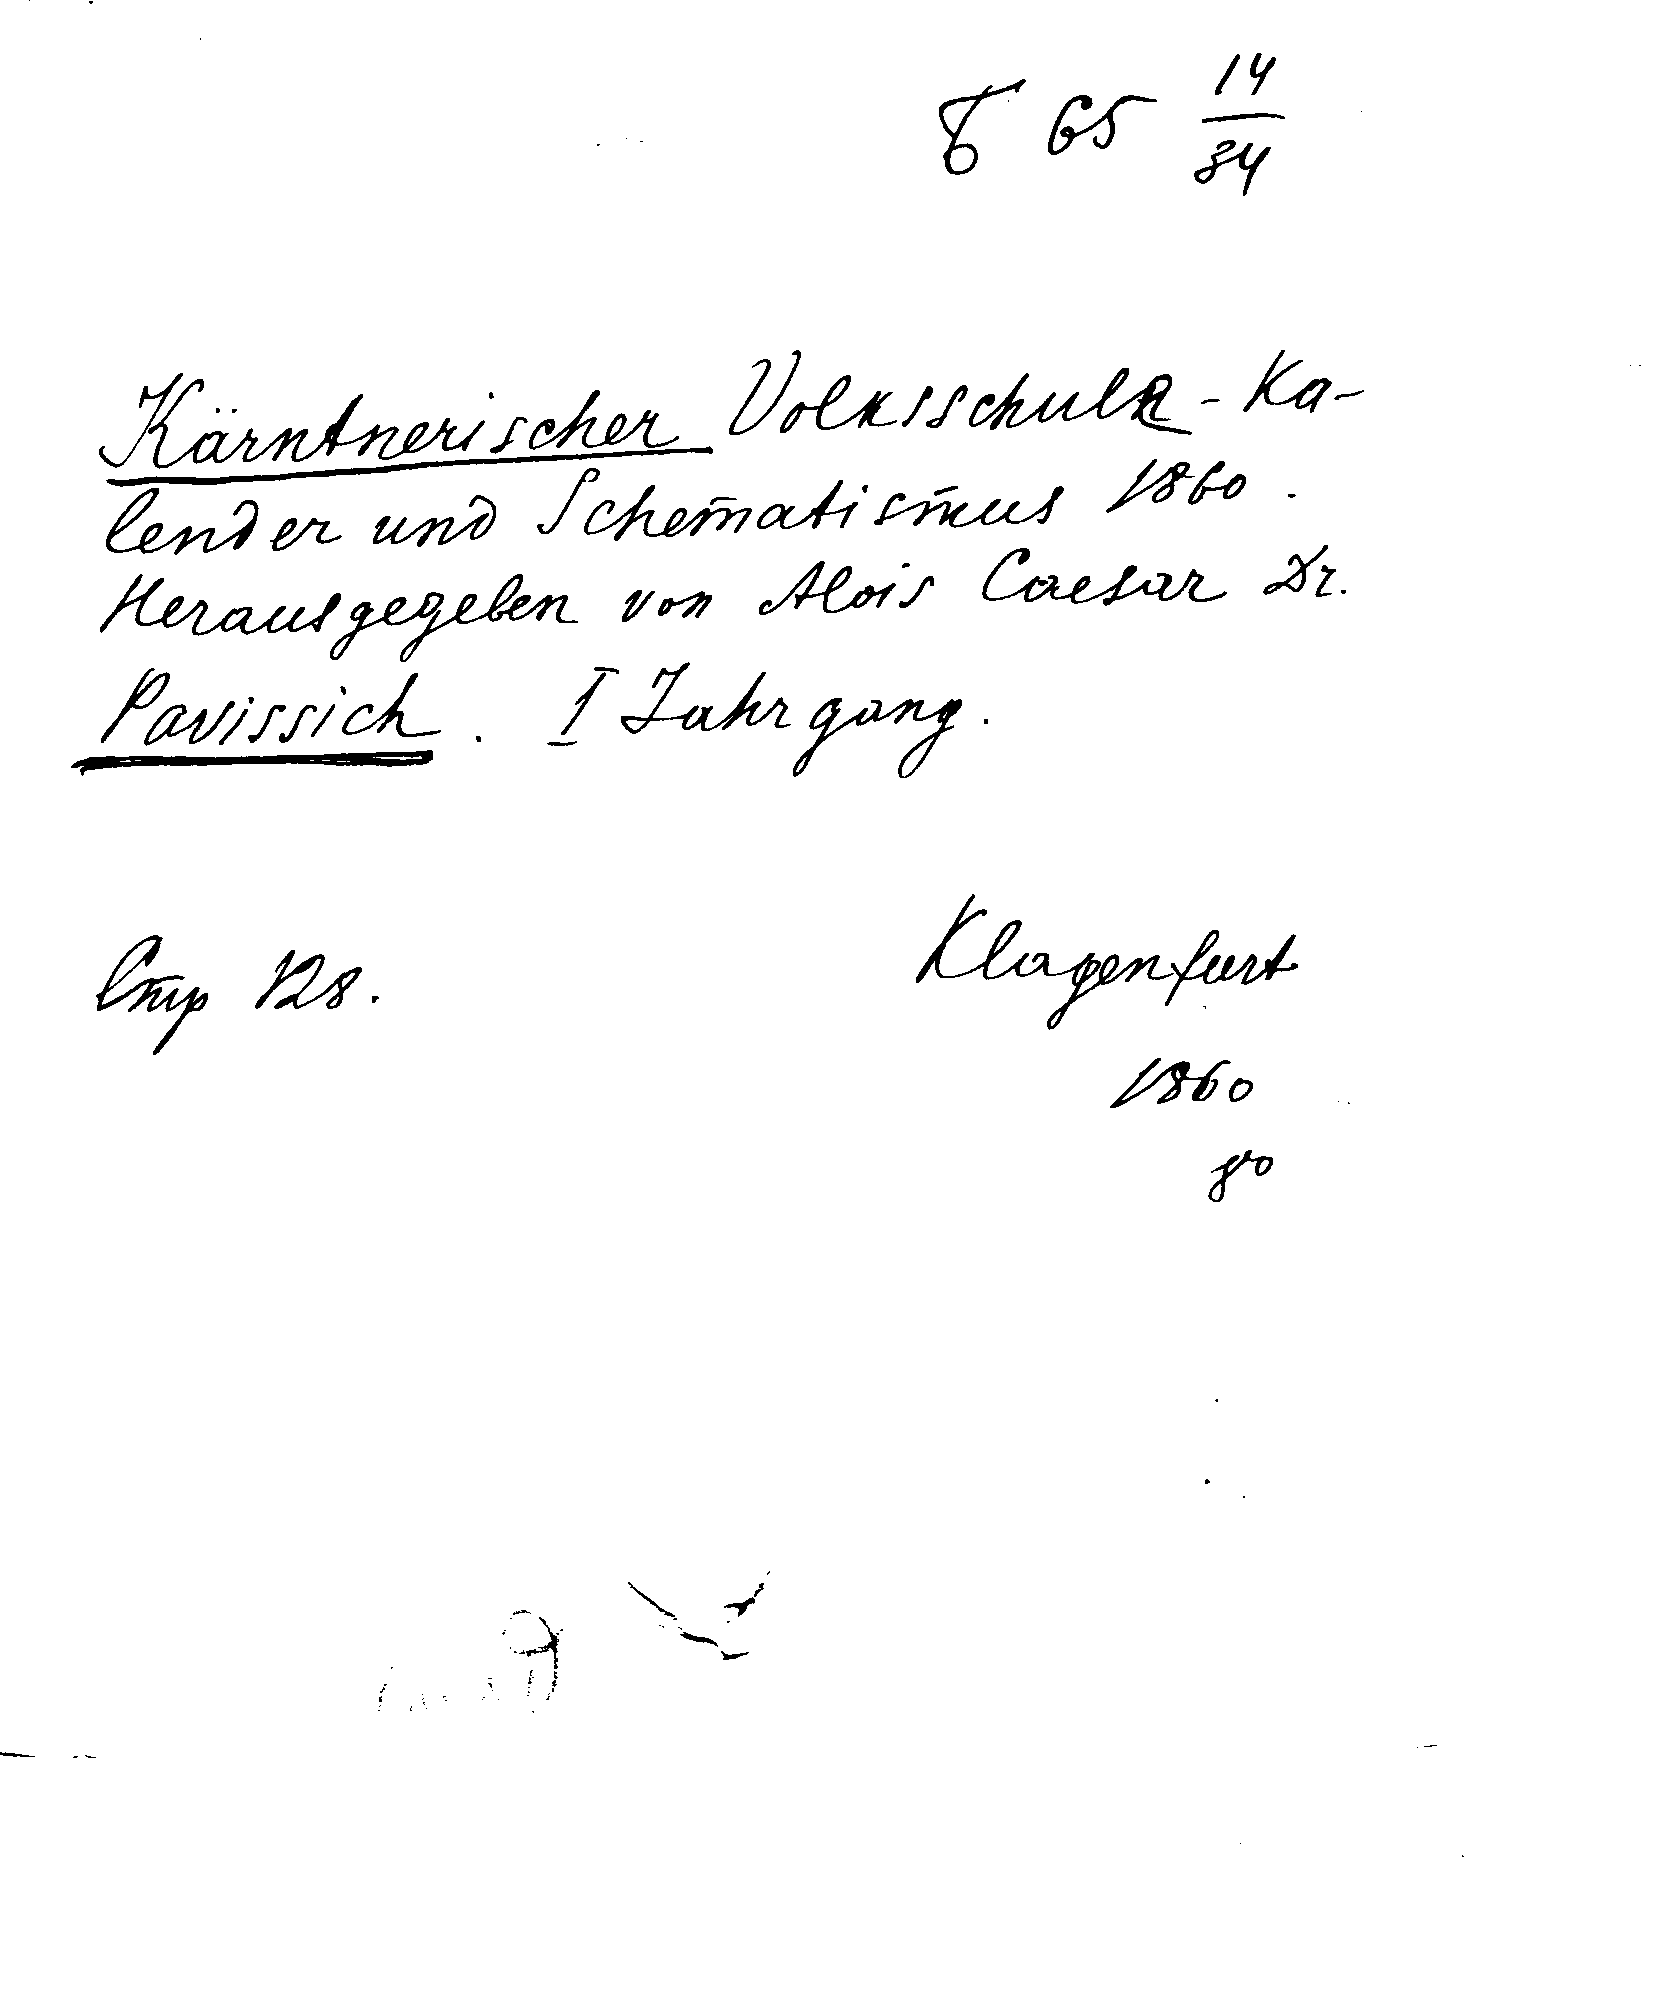 Б 65 14/34
Kärntnerischer Volksschule-Ka-
lender und Schematismus 1860.
Herausgegeben von Alois Caesar Dr.
Pavissich. I Jahrgang.
Стр 128.
Klagenfurt
1860
8º